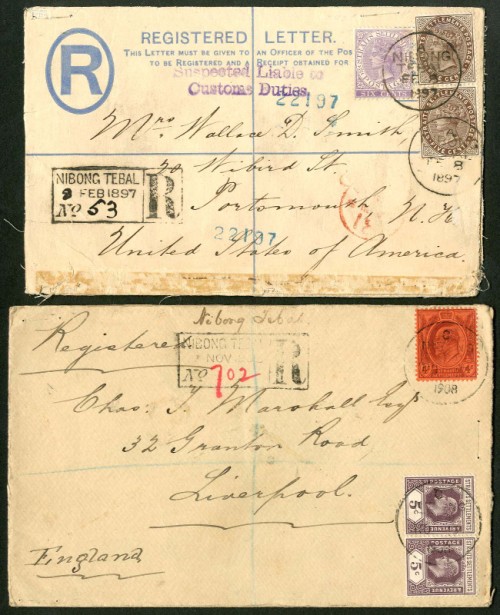 REGISTERED LETTER.
THIS LETTER MUST BE GIVEN TO AN OFFICER OF THE POS
TO BE REGISTERED AND A RECEIPT OBTAINED FOR
R
Suspected Liable to
Customs Duties.
22197
SIX CENTS
NIBONG
1897
Mrs Wallace D. Smith,
70 Wibird St.
NIBONG TEBAL
9 FEB 1897
No 53
R
Portsmouth, N.H.
8
1897
22197
United States of America.
Nibong Tebal
Registered
NIBONG TEBAL
NOV
No 702
R
C
1908
Chas: J. Marshall Esqr
32 Granton Road
Liverpool.
England
POSTAGE
5c
STRAITS SETTLEMENTS
POSTAGE
5c